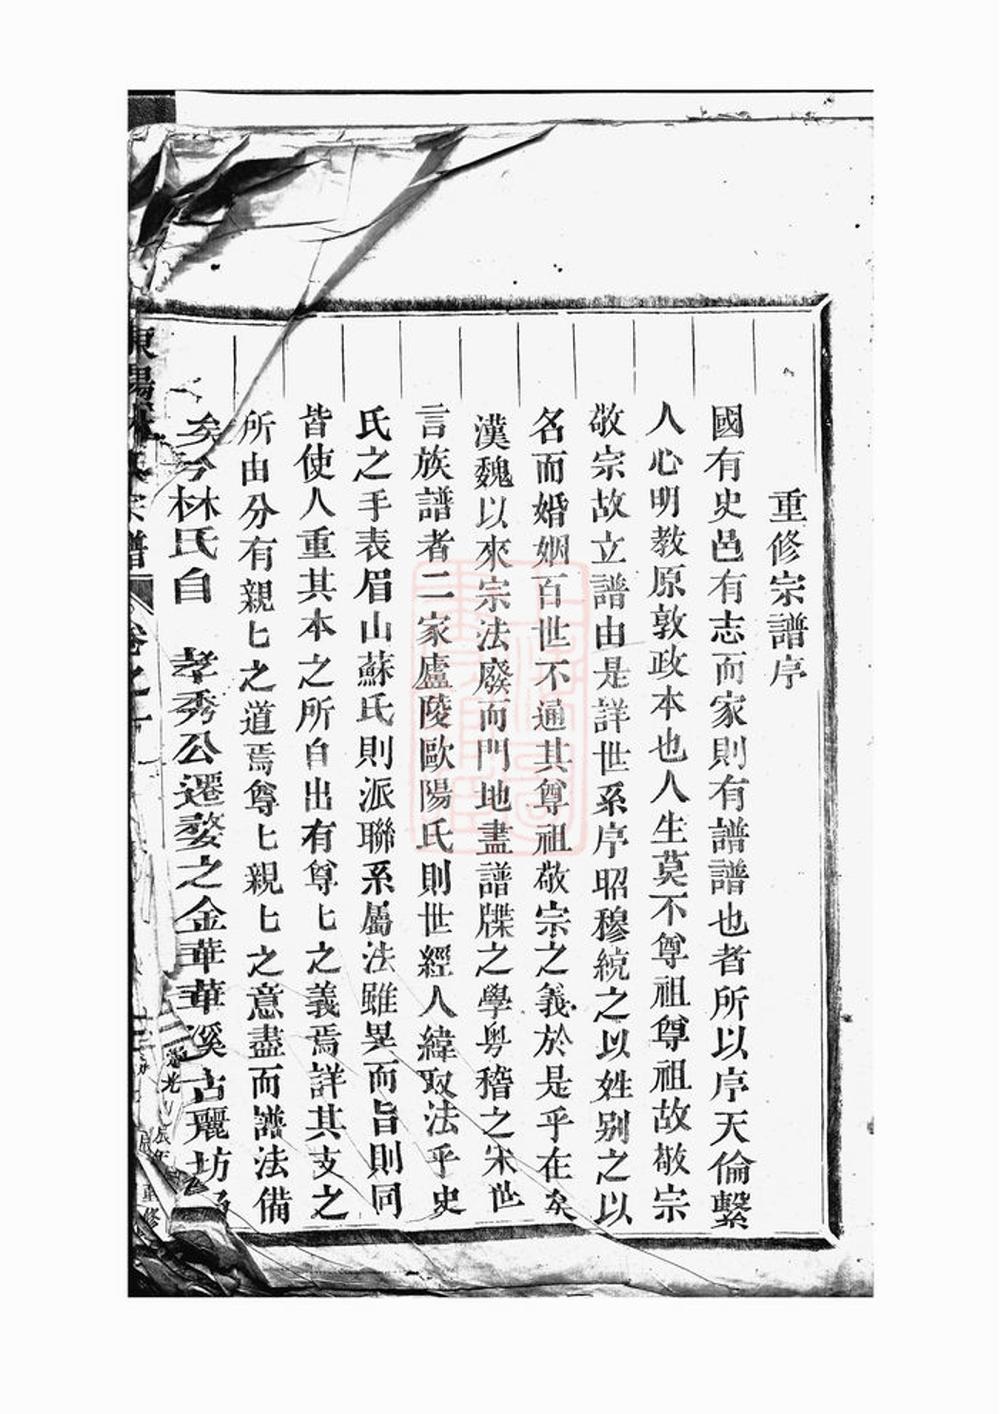 重修宗譜序
國有史邑有志而家則有譜譜也者所以序天倫繫
人心明教原敦政本也人生莫不尊祖尊祖故敬宗
敬宗故立譜由是詳世系序昭穆統之以姓别之以
名而婚姻百世不通其尊祖敬宗之義於是乎在矣
漢魏以來宗法廢而門地盡譜牒之學粤稽之宋世
言族譜者二家廬陵歐陽氏則世經人緯取法乎史
氏之手表眉山蘇氏則派聯系屬法雖異而旨則同
皆使人重其本之所自出有尊匕之義焉詳其支之
所由分有親匕之道焉尊匕親匕之意盡而譜法備
矣今林氏自 孝秀公遷婺之金華華溪古麗坊
東陽林氏宗譜 卷之
重修